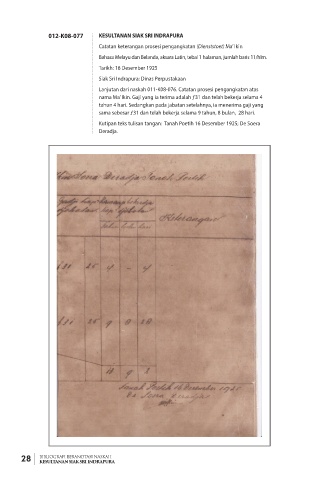 012-K08-077
KESULTANAN SIAK SRI INDRAPURA
Catatan keterangan prosesi pengangkatan (Dienststaad) Ma'ikin
Bahasa Melayu dan Belanda, aksara Latin, tebal 1 halaman, jumlah baris 11/hlm.
Tarikh: 16 Desember 1925
Siak Sri Indrapura: Dinas Perpustakaan
Lanjutan dari naskah 011-K08-076. Catatan prosesi pengangkatan atas
nama Ma'ikin. Gaji yang ia terima adalah ƒ31 dan telah bekerja selama 4
tahun 4 hari. Sedangkan pada jabatan setelahnya, ia menerima gaji yang
sama sebesar ƒ31 dan telah bekerja selama 9 tahun, 8 bulan, 28 hari.
Kutipan teks tulisan tangan: Tanah Poetih 16 Desember 1925. De Soera
Deradja.
Deradja Tanah Poetih
Keterangan
4 - 4
Tanah Poetih 16 December 1925
De Soera Deradja
28
BIBLIOGRAFI BERANOTASI NASKAH
KESULTANAN SIAK SRI INDRAPURA